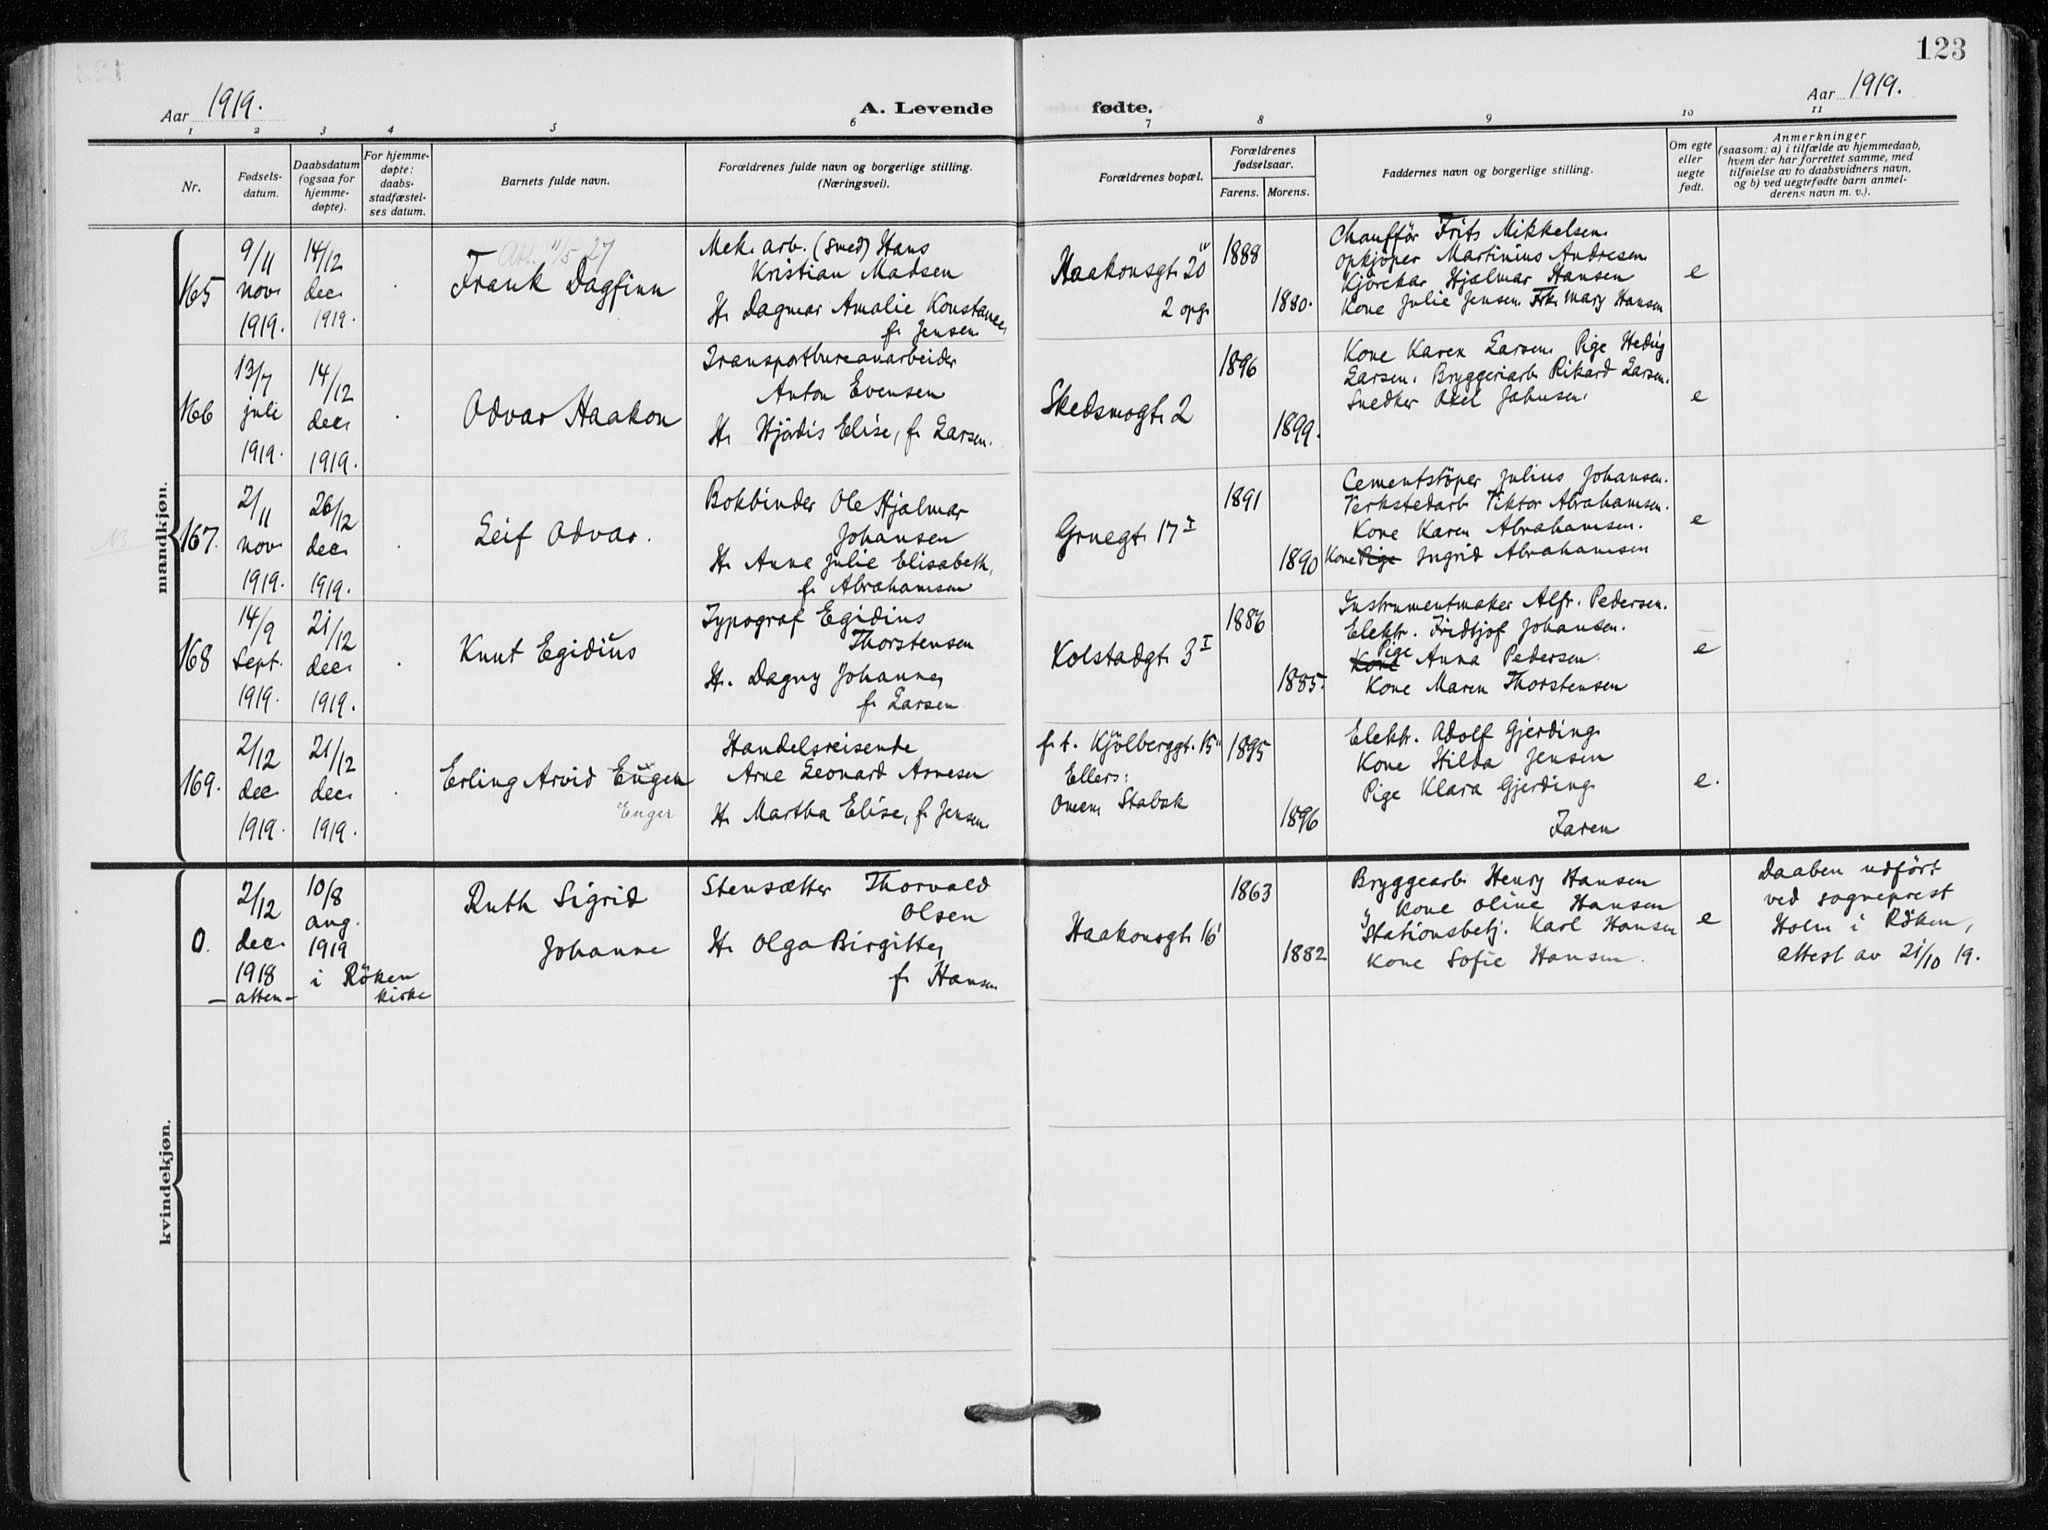 123
Aar 1919.
A. Levende fødte.
Aar 1919.
1 2 3 4 5 6 7 8 9 10 11
Nr.
Fødsels-
datum.
Daabsdatum
(ogsaa for
hjemme-
døpte).
For hjemme-
døpte:
daabs-
stadfæstel-
ses datum.
Barnets fulde navn.
Forældrenes fulde navn og borgerlige stilling.
(Næringsvei).
Forældrenes bopæl.
Forældrenes
fødselsaar.
Farens. Morens.
Faddernes navn og borgerlige stilling.
Om egte
eller
uegte
født.
Anmerkninger
(saasom: a) i tilfælde av hjemmedaab,
hvem der har forrettet samme, med
tilføielse av to daabsvidners navn,
og b) ved uegtefødte barn anmel-
derens navn m. v.).
mandkjøn.
165
9/11
nov.
1919.
14/12
dec.
1919.
Att. 11/5 27
Frank Dagfinn
Mek. arb. (smed) Hans
Kristian Madsen
H. Dagmar Amalie Konstance,
f. Jensen
Haakonsgt. 20"
2 opg.
1888
1880.
Chauffør Frits Mikkelsen.
opkjøper Martinius Andresen.
Kjørekar Hjalmar Hansen
Kone Julie Jensen. Frk. Mary Hansen
e
166
13/7
juli
1919.
14/12
dec.
1919.
Odvar Haakon
Transportbureauarbeider
Anton Evensen
H. Hjørdis Elise, f. Larsen.
Skedsmogt. 2
1896
1899.
Kone Karen Larsen. Pige Hedvig
Larsen. Bryggeriarb. Rikard Larsen.
Snedker Axel Johnsen.
e
NB
167.
2/11
nov.
1919.
26/12
dec.
1919.
Leif Odvar.
Bokbinder Ole Hjalmar
Johansen
H. Anna Julie Elisabeth,
f. Abrahamsen
Gruegt. 17 I
1891
1890
Cementstøper Julius Johansen.
Verkstedarb. Viktor Abrahamsen.
Kone Karen Abrahamsen.
Kone Pige Ingrid Abrahamsen
e
168
14/9
Sept.
1919.
21/12
dec.
1919.
Knut Egidius
Typograf Egidius
Thorstensen
H. Dagny Johanne,
f. Larsen
Kolstadgt. 3 I
1886
1885.
Instrumentmaker Alfr. Pedersen.
Elektr. Fridtjof Johansen.
Pige
Kone Anna Pedersen.
Kone Maren Thorstensen
e
169.
2/12
dec.
1919.
21/12
dec.
1919.
Erling Arvid Eugen
Euger
Handelsreisende
Arne Leonard Arnesen
H. Martha Elise, f. Jensen.
f. t. Kjølberggt. 15"
Ellers:
Stabæk
1895
1896
Elektr. Adolf Gjerding.
Kone Hilda Jensen
Pige Klara Gjerding.
Faren
e.
kvindekjøn.
0.
2/12
dec.
1918
– atten –
10/8
aug.
1919
i Røken
kirke
Ruth Sigrid
Johanne
Stensætter Thorvald
Olsen
H. Olga Birgitte,
f. Hansen
Haakonsgt. 16
1863
1882
Bryggearb. Henry Hansen
Kone Oline Hansen
Stationsbetj. Karl Hansen
Kone Sofie Hansen.
e
Daaben udført
ved sogneprest
Holm i Røken,
attest av 21/10 19.